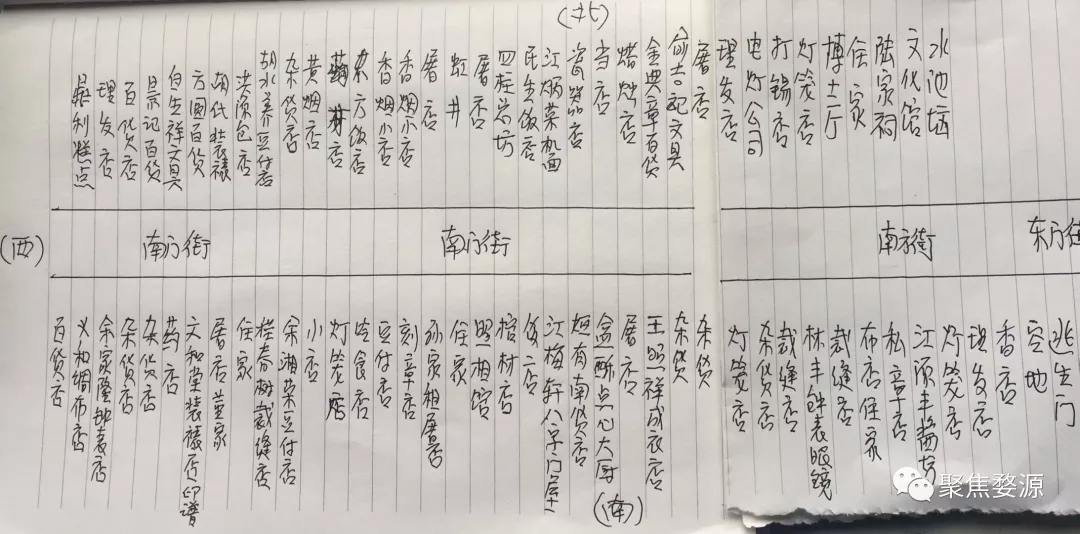 (北)
鼎利糕点
理发店
百货店
景记百货
自生祥文具
方圆百货
胡氏装裱
洪源包店
胡水养豆付店
杂货店
黄烟店
东方饭店
香烟小店
香烟小店
屠店
虹井
屠店
四柱总坊
民生饭店
江炳荣机面
瓷器店
当店
熔烛店
金典章百货
俞吉记文具
屠店
理发店
电灯公司
打锡店
灯笼店
博士厅
住家
陆家祠
文化馆
水池塝
(西)
南门街
南门街
南门街
东门街
百货店
义和绸布店
余家隆钟表店
杂货店
杂货店
药店
文和堂装裱店印谱
屠店董家
住家
桂春树裁缝店
余湘荣豆付店
小店
灯笼店
冷食店
豆付店
刻章店
孙家租屠店
住家
照相馆
棺材店
饭店
江梅轩公学门屋
短有南货店
盒酥点心大厨
屠店
王照祥成衣店
杂货
杂货
灯笼店
杂货店
裁缝店
林丰钟表眼镜
裁缝店
布店住家
私章店
江源丰酱坊
灯笼店
理发店
香店
空地
逃生门
(南)
聚焦婺源